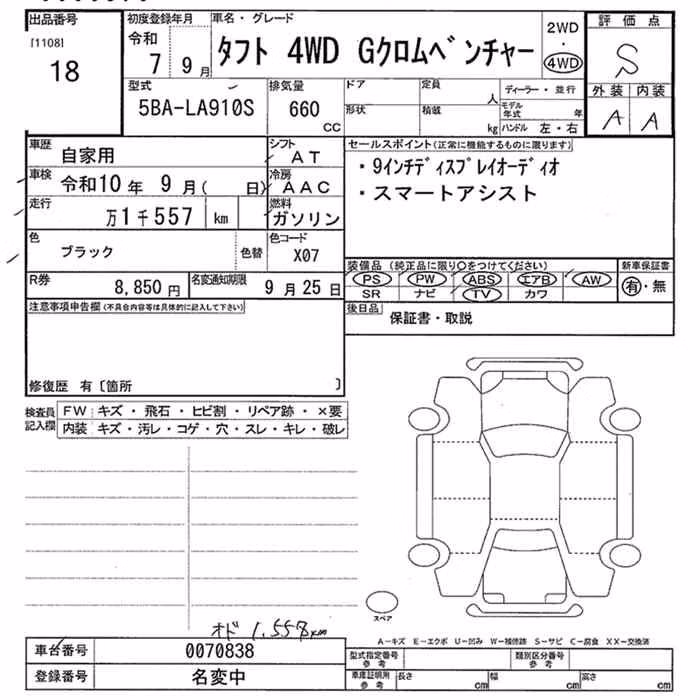 出品番号
[1108]
18
初度登録年月
令和
7 9月
車名・グレード
タフト 4WD Gクロムベンチャー
2WD
・
4WD
評価点
S
外装 内装
A A
型式
5BA-LA910S
排気量
660
CC
ドア
定員
人
形状
積載
kg
ディーラー・並行
モデル年式 年
ハンドル 左・右
車歴
自家用
シフト
AT
車検
令和10年 9月( 日)
冷房
AAC
走行
万1千557 km
燃料
ガソリン
色
ブラック
色替
色コード
X07
R券
8,850円
名変通知期限
9月25日
セールスポイント(正常に機能するものに限ります)
・9インチディスプレイオーディオ
・スマートアシスト
装備品 (純正品に限り〇をつけてください)
PS PW ABS エアB AW
SR ナビ TV カワ
新車保証書
有・無
後日品
保証書・取説
注意事項申告欄(不具合内容等は具体的に記入して下さい)
修復歴 有〔箇所 〕
検査員記入欄
FW キズ・飛石・ヒビ割・リペア跡・×要
内装 キズ・汚レ・コゲ・穴・スレ・キレ・破レ
スペア
オド 1,558km
A-キズ E-エクボ U-凹み W-補修跡 S-サビ C-腐食 XX-交換済
車台番号
0070838
登録番号
名変中
型式指定番号
参考
類別区分番号
参考
車庫証明用
参考
長さ cm
幅 cm
高さ cm